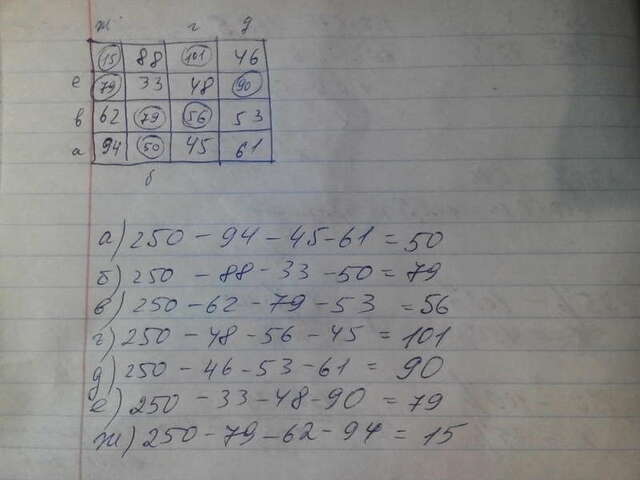 ж г д
15 88 101 46
е 79 33 48 90
в 62 79 56 53
а 94 50 45 61
б
а) 250 - 94 - 45 - 61 = 50
б) 250 - 88 - 33 - 50 = 79
в) 250 - 62 - 79 - 53 = 56
г) 250 - 48 - 56 - 45 = 101
д) 250 - 46 - 53 - 61 = 90
е) 250 - 33 - 48 - 90 = 79
ж) 250 - 79 - 62 - 94 = 15